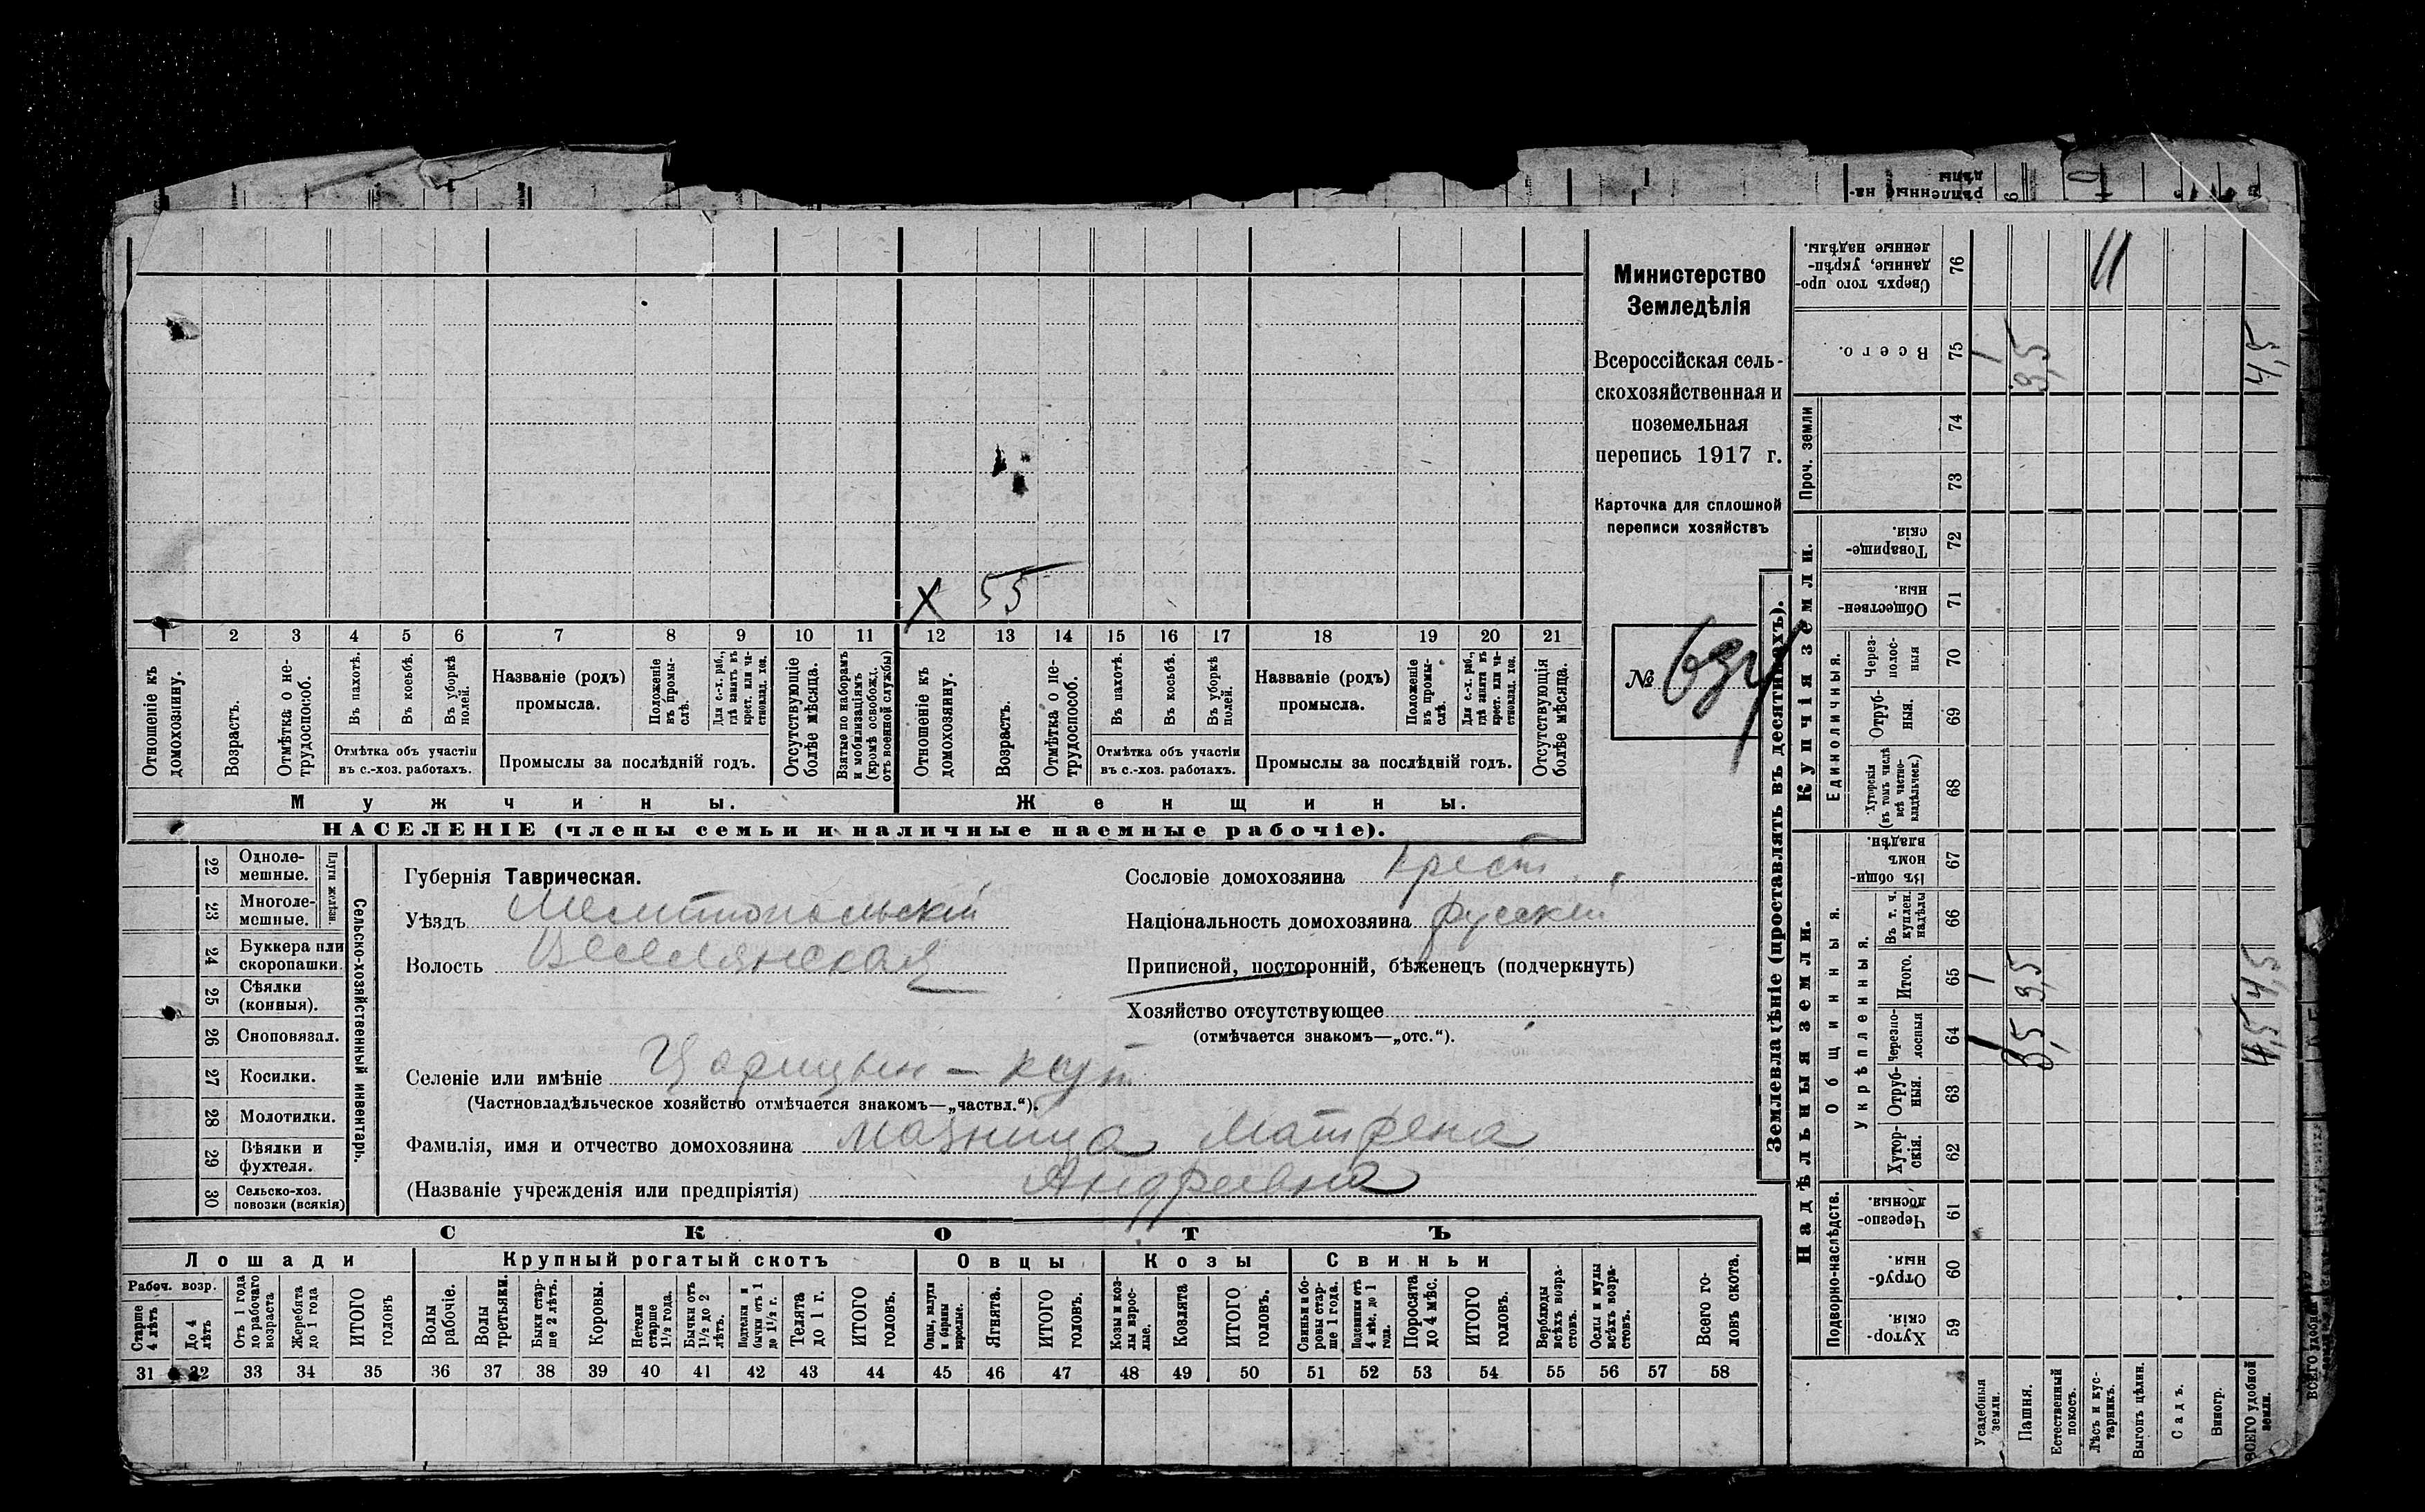 Министерство
Земледѣлія
Всероссійская сель-
скохозяйственная и
поземельная
перепись 1917 г.
Карточка для сплошной
переписи хозяйствъ
№
X 55
1 2 3 4 5 6 7 8 9 10 11 12 13 14 15 16 17 18 19 20 21
Отношеніе къ домохозяину.
Возрастъ.
Отмѣтка о не-трудоспособ.
Въ пахотѣ.
Въ косьбѣ.
Въ уборкѣ полей.
Отмѣтка объ участіи
въ с.-хоз. работахъ.
Названіе (родъ)
промысла.
Положеніе въ промы-слѣ.
Для с.-х. раб., гдѣ занятъ въ крест. или ча-стновлад. хоз.
Промыслы за послѣдній годъ.
Отсутствующіе болѣе мѣсяца.
Взятые по наборамъ и мобилизаціямъ (кромѣ освобожд. отъ военной службы)
Отношеніе къ домохозяину.
Возрастъ.
Отмѣтка о не-трудоспособ.
Въ пахотѣ.
Въ косьбѣ.
Въ уборкѣ полей.
Отмѣтка объ участіи
въ с.-хоз. работахъ.
Названіе (родъ)
промысла.
Положеніе въ промы-слѣ.
Для с.-х. раб., гдѣ занята въ крест. или ча-стновлад. хоз.
Промыслы за послѣдній годъ.
Отсутствующія болѣе мѣсяца.
Мужчины.
Женщины.
НАСЕЛЕНІЕ (члены семьи и наличные наемные рабочіе).
22 Одноле-мешные.
23 Многоле-мешные.
Плуги желѣзн.
24 Буккера или скоропашки.
25 Сѣялки (конныя).
26 Сноповязал.
27 Косилки.
28 Молотилки.
29 Вѣялки и фухтеля.
30 Сельско-хоз. повозки (всякія)
Сельско-хозяйственный инвентарь.
Губернія Таврическая.
Уѣздъ Мелитопольскій
Волость Веселянская
Селеніе или имѣніе Царицын – кут
(Частновладѣльческое хозяйство отмѣчается знакомъ—„частвл.“).
Фамилія, имя и отчество домохозяина Мазница Матрена
(Названіе учрежденія или предпріятія) Андреевна
Сословіе домохозяина крест.
Національность домохозяина русскій
Приписной, посторонній, бѣженецъ (подчеркнуть)
Хозяйство отсутствующее
(отмѣчается знакомъ—„отс.“).
СКОТЪ
Лошади
Крупный рогатый скотъ
Овцы
Козы
Свиньи
Рабоч. возр.
Старше 4 лѣтъ
До 4 лѣтъ
Отъ 1 года до рабочаго возраста
Жеребята до 1 года
ИТОГО головъ
Волы рабочіе.
Волы третьяки.
Быки стар-ше 2 лѣтъ.
Коровы.
Нетели старше 1½ года.
Бычки отъ 1½ до 2 лѣтъ.
Подтелки и бычки отъ 1 до 1½ г.
Телята до 1 г.
ИТОГО головъ.
Овцы, валухи и бараны взрослые.
Ягнята.
ИТОГО головъ.
Козы и коз-лы взрос-лые.
Козлята
ИТОГО головъ.
Свиньи и бо-ровы стар-ше 1 года.
Подсвинки отъ 4 мѣс. до 1 года.
Поросята до 4 мѣс.
ИТОГО головъ.
Верблюды всѣхъ возра-стовъ.
Ослы и мулы всѣхъ возра-стовъ.
Всего го-ловъ скота.
31 32 33 34 35 36 37 38 39 40 41 42 43 44 45 46 47 48 49 50 51 52 53 54 55 56 57 58
Землевладѣніе (проставлять въ десятинахъ).
Купчія земли.
Надѣльныя земли.
Сверхъ того про-данные, укрѣп-ленные надѣлы. 76 11
Всего. 75 1 3,5 4,5
Проч. земли
74
73
Товарище-скія. 72
Обществен-ныя. 71
Единоличныя.
Черезполос-ныя 70
Отруб-ныя. 69
Хуторскія (въ томъ числѣ всѣ частно-владѣльческ.) 68
Общинныя.
Въ общи-номъ владѣн. 67
Укрѣпленныя.
Въ т. ч. куплен. надѣлы 66
Итого. 65 1 3,5 4,5
Черезпо-лосныя 64 1 3,5 4,5
Отруб-ныя. 63
Хутор-скія. 62
Подворно-наслѣдств.
Черезпо-лосныя. 61
Отруб-ныя. 60
Хутор-скія. 59
Усадебныя земли.
Пашня.
Естественный покосъ.
Лѣсъ и кус-тарникъ.
Выгонъ цѣлин.
Садъ.
Виногр.
ВСЕГО удобной земли.